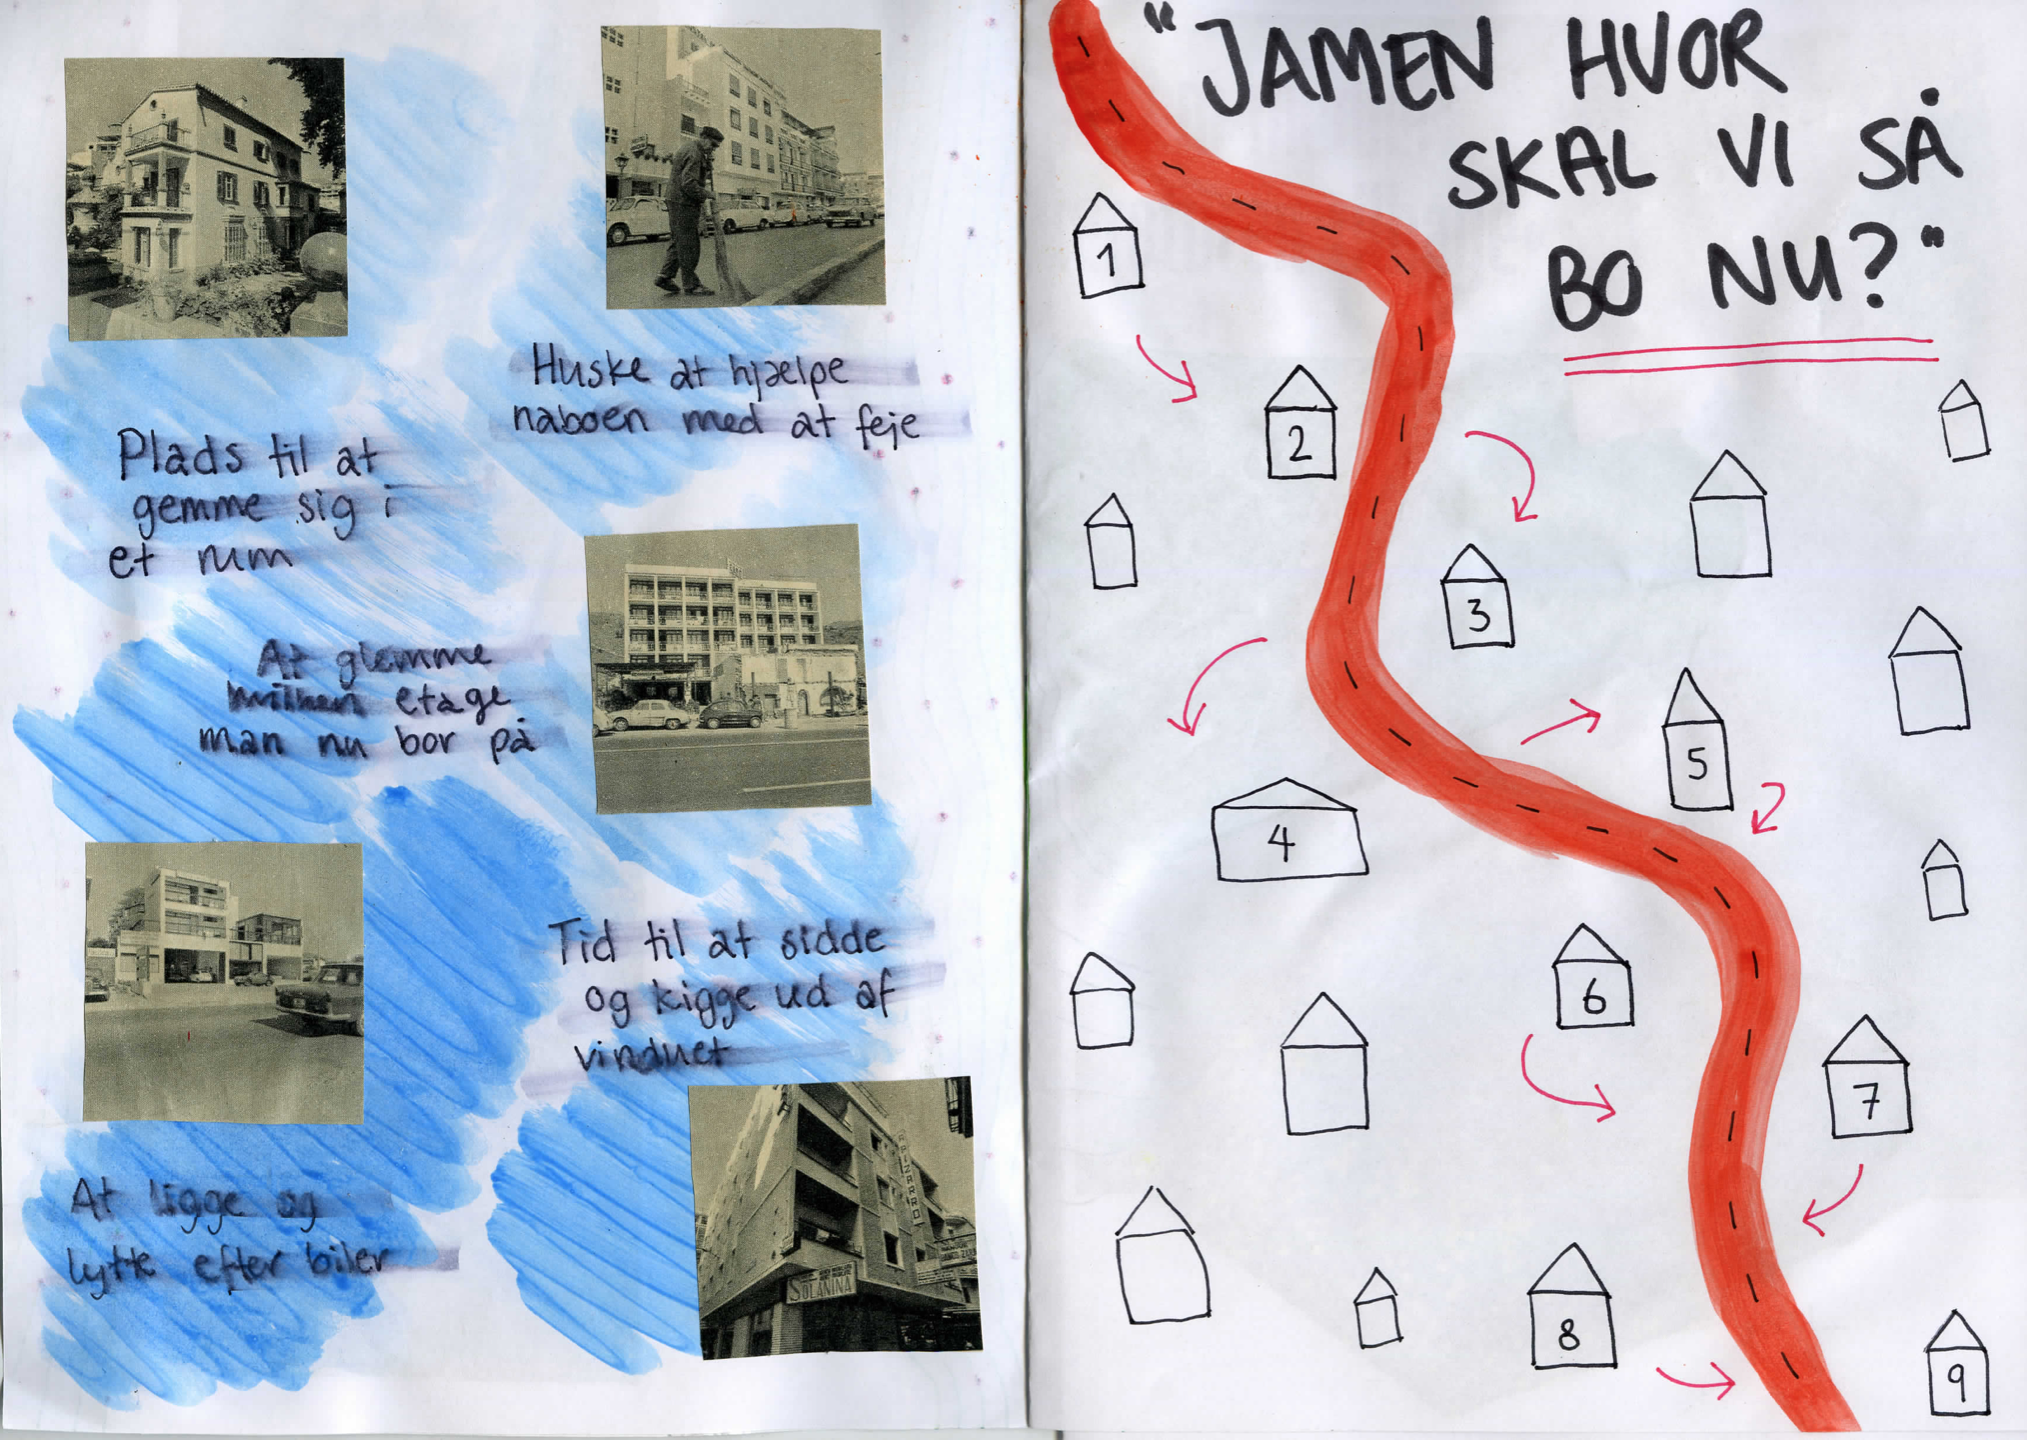 Huske at hjælpe
naboen med at feje
Plads til at
gemme sig i
et rum
At glemme
hvilken etage
man nu bor på
Tid til at sidde
og kigge ud af
vinduet
At ligge og
lytte efter biler
PIZARRO
SOLANINA
"JAMEN HVOR
SKAL VI SÅ
BO NU?"
1
2
3
4
5
6
7
8
9